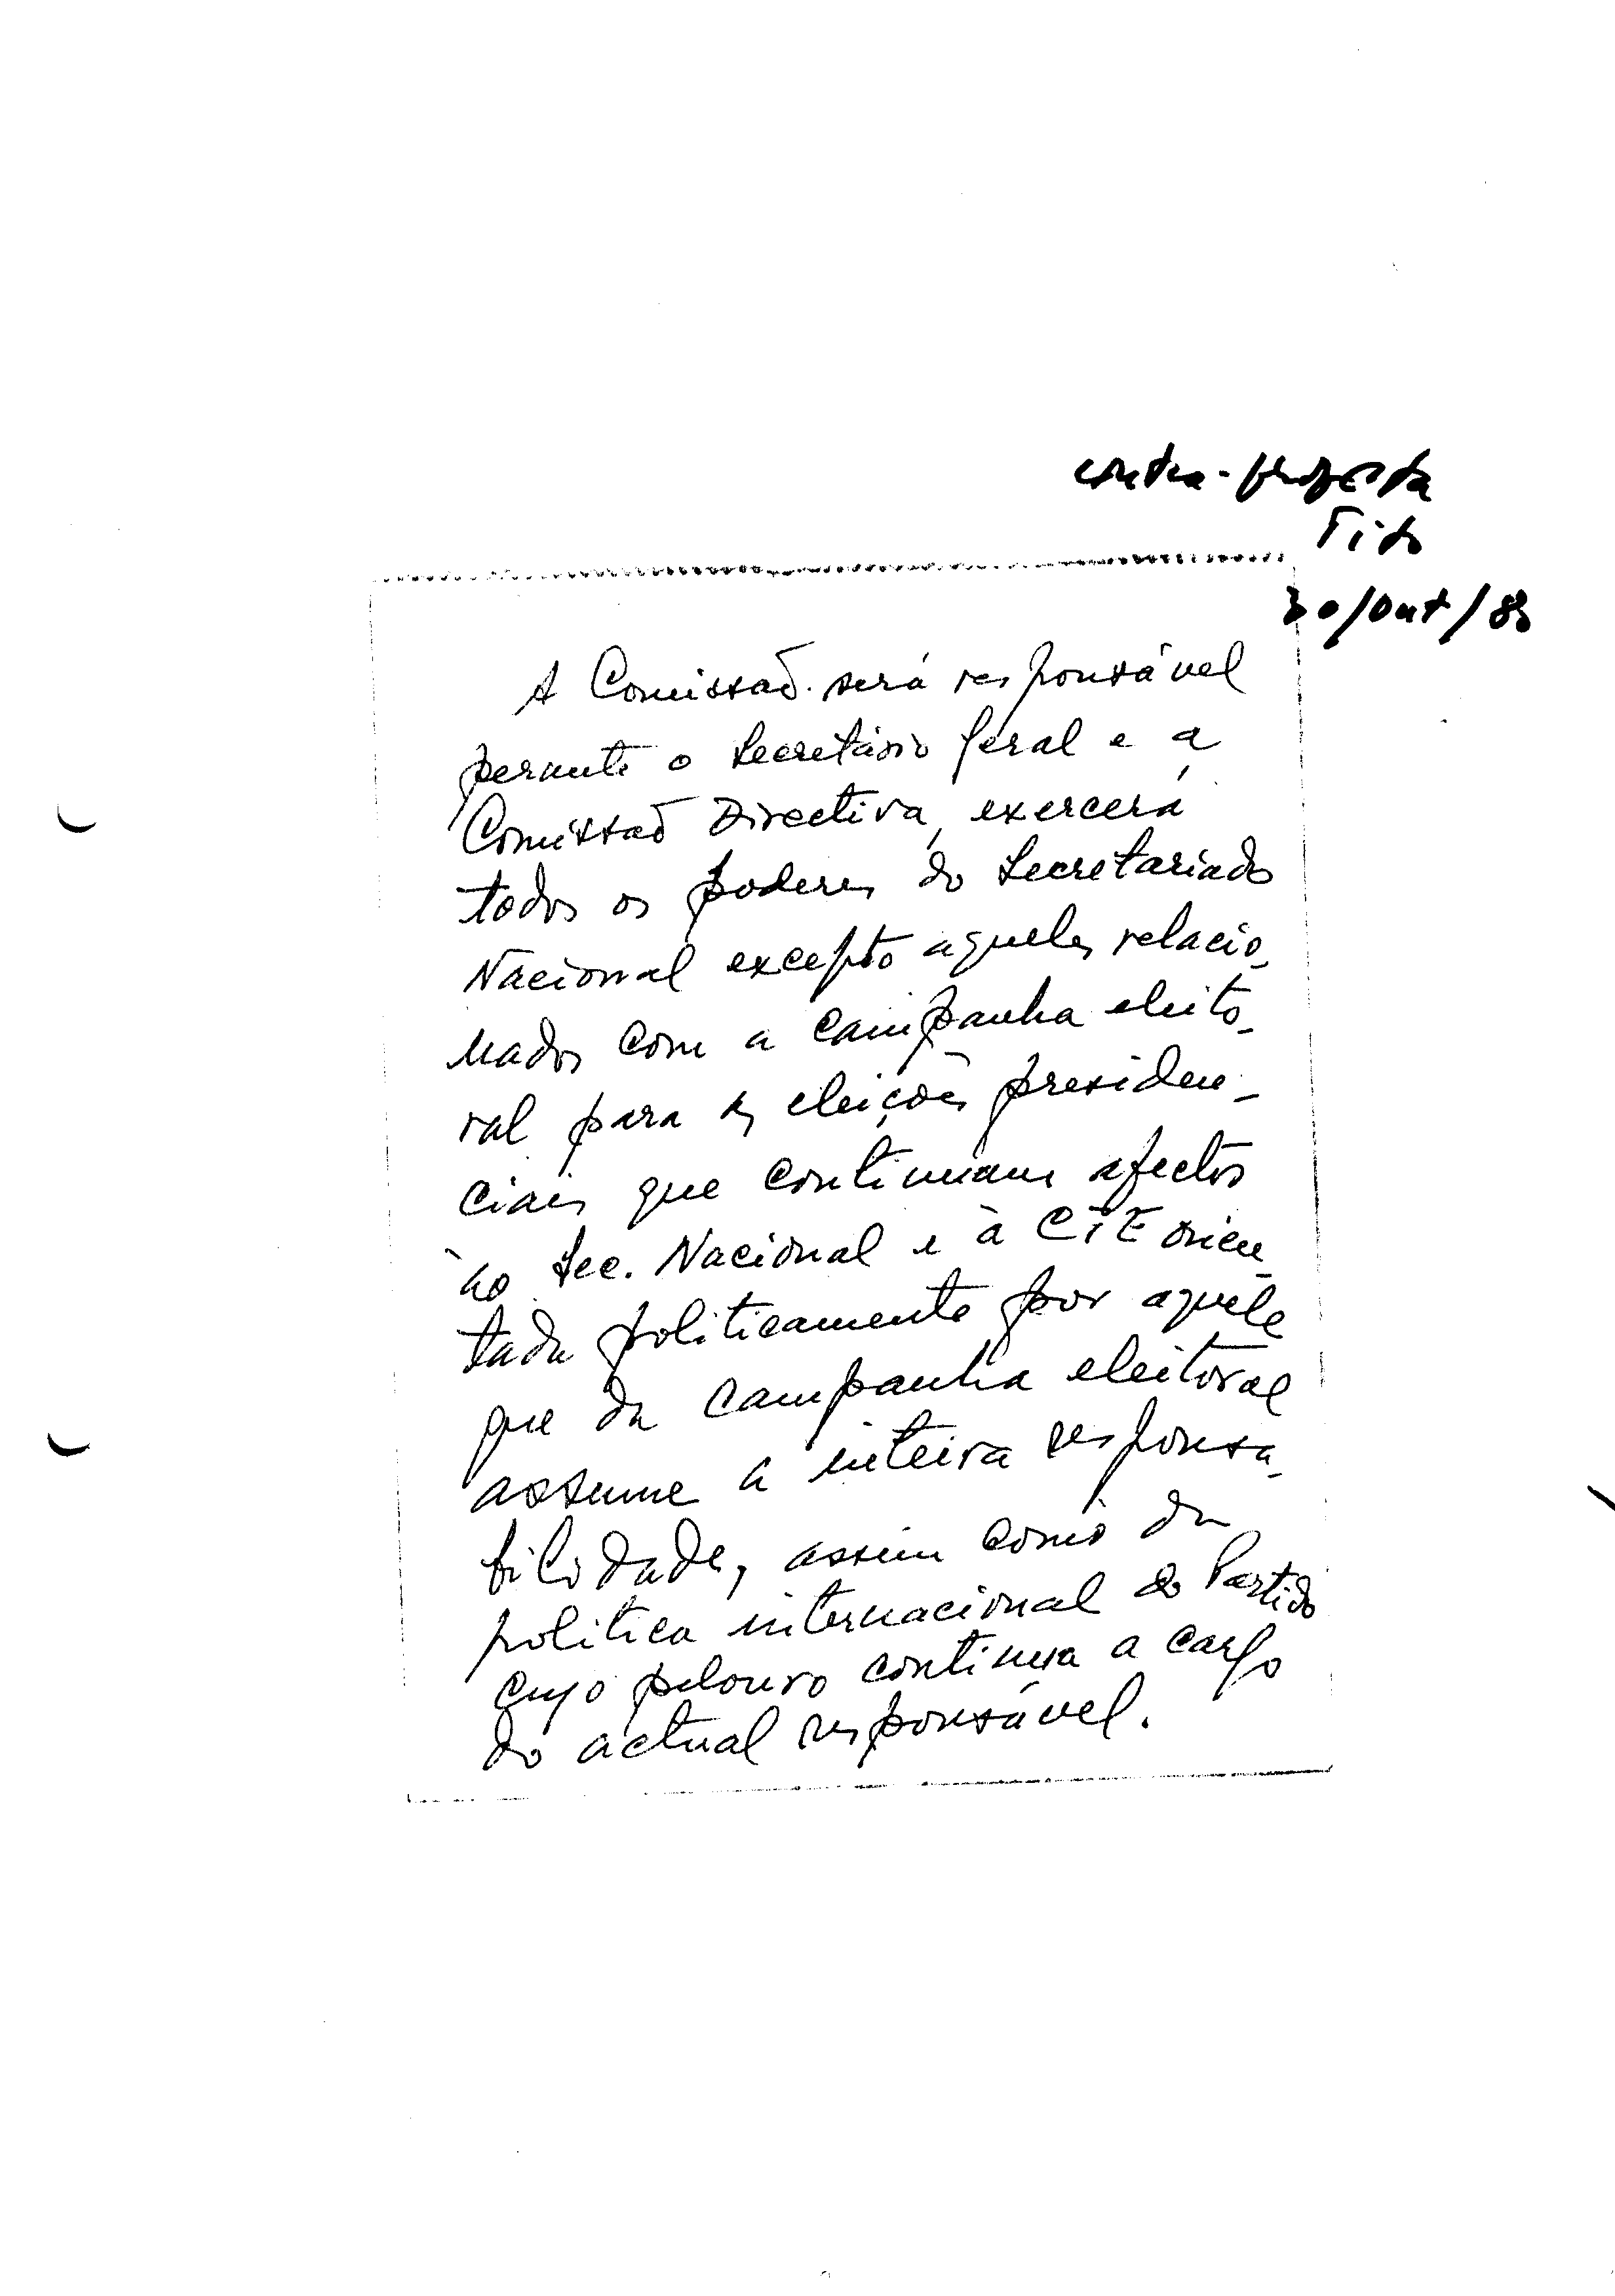 contra-proposta
Tito
30/Out/80
A Comissão será responsável
perante o Secretário Geral e a
Comissão Directiva, exercerá
todos os poderes do Secretariado
Nacional excepto aqueles relacio-
nados com a campanha eleito-
ral para as eleições presiden-
ciais que continuam afectos
ao Sec. Nacional e à CTE orien-
tada politicamente por aquele
que da campanha eleitoral
assume a inteira responsa-
bilidade, assim como da
politica internacional do Partido
cujo pelouro continua a cargo
do actual responsável.